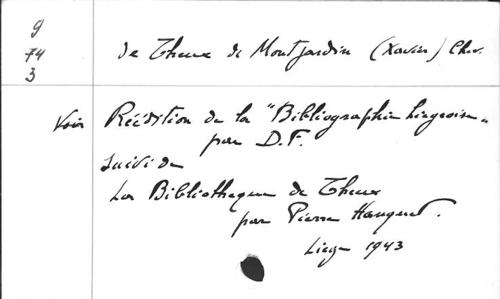 9
74
3
de Theux de Montjardin (Xavier) Chev.
Voir Réédition de la "Bibliographie Liégeoise"
par D.F.
suivi de
La Bibliothèque de Theux
par Pierre Hanquet.
Liège 1943